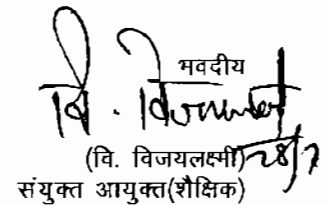 भवदीय
वि. विजयलक्ष्मी
(वि. विजयलक्ष्मी) 28/7
संयुक्त आयुक्त(शैक्षिक)